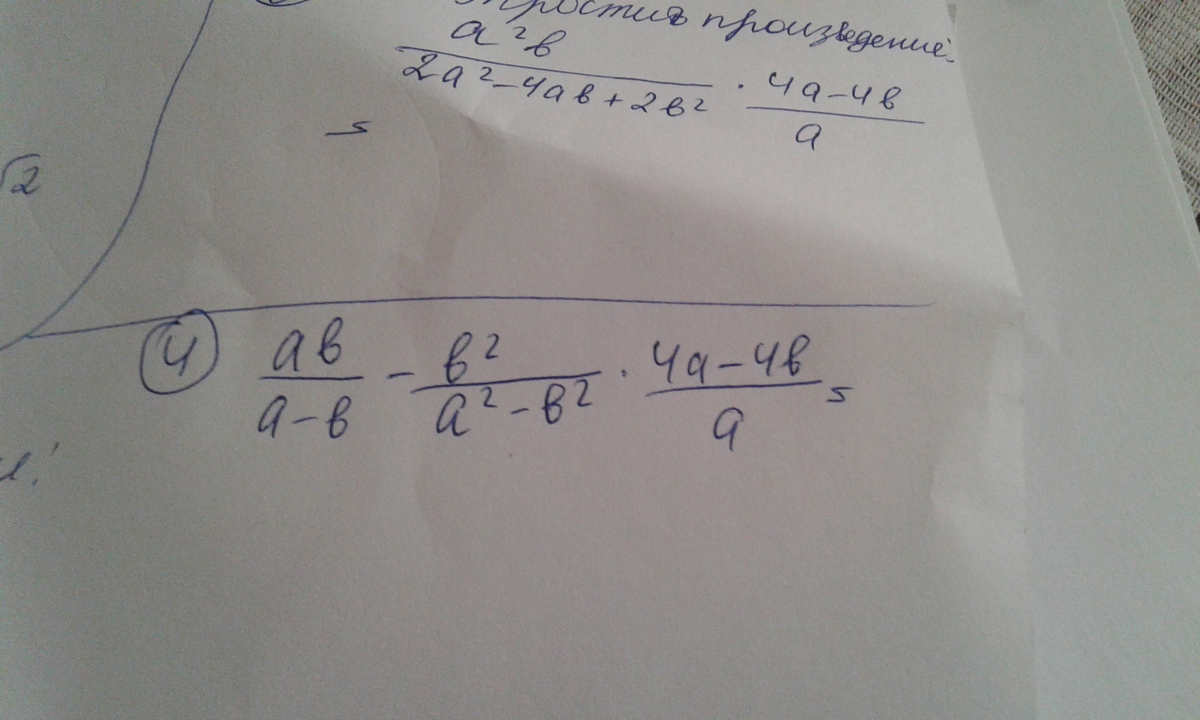 произведение.
a²b
2a²-4ab+2b² · 4a-4b
a
=
√2
④ ab/a-b - b²/a²-b² · 4a-4b/a =